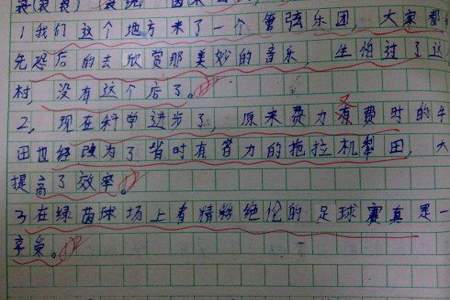 1我们这个地方来了一个管弦乐团,大家都
先恐后的去欣赏那美妙的音乐 生怕过了这
村,没有这个店了。
2,现在科学进步了,原来费力有费时的牛
田也经改为了省时有省力的拖拉机犁田,大
提高了效率。
3在绿茵球场上看精彩绝伦的足球赛真是一
享受。